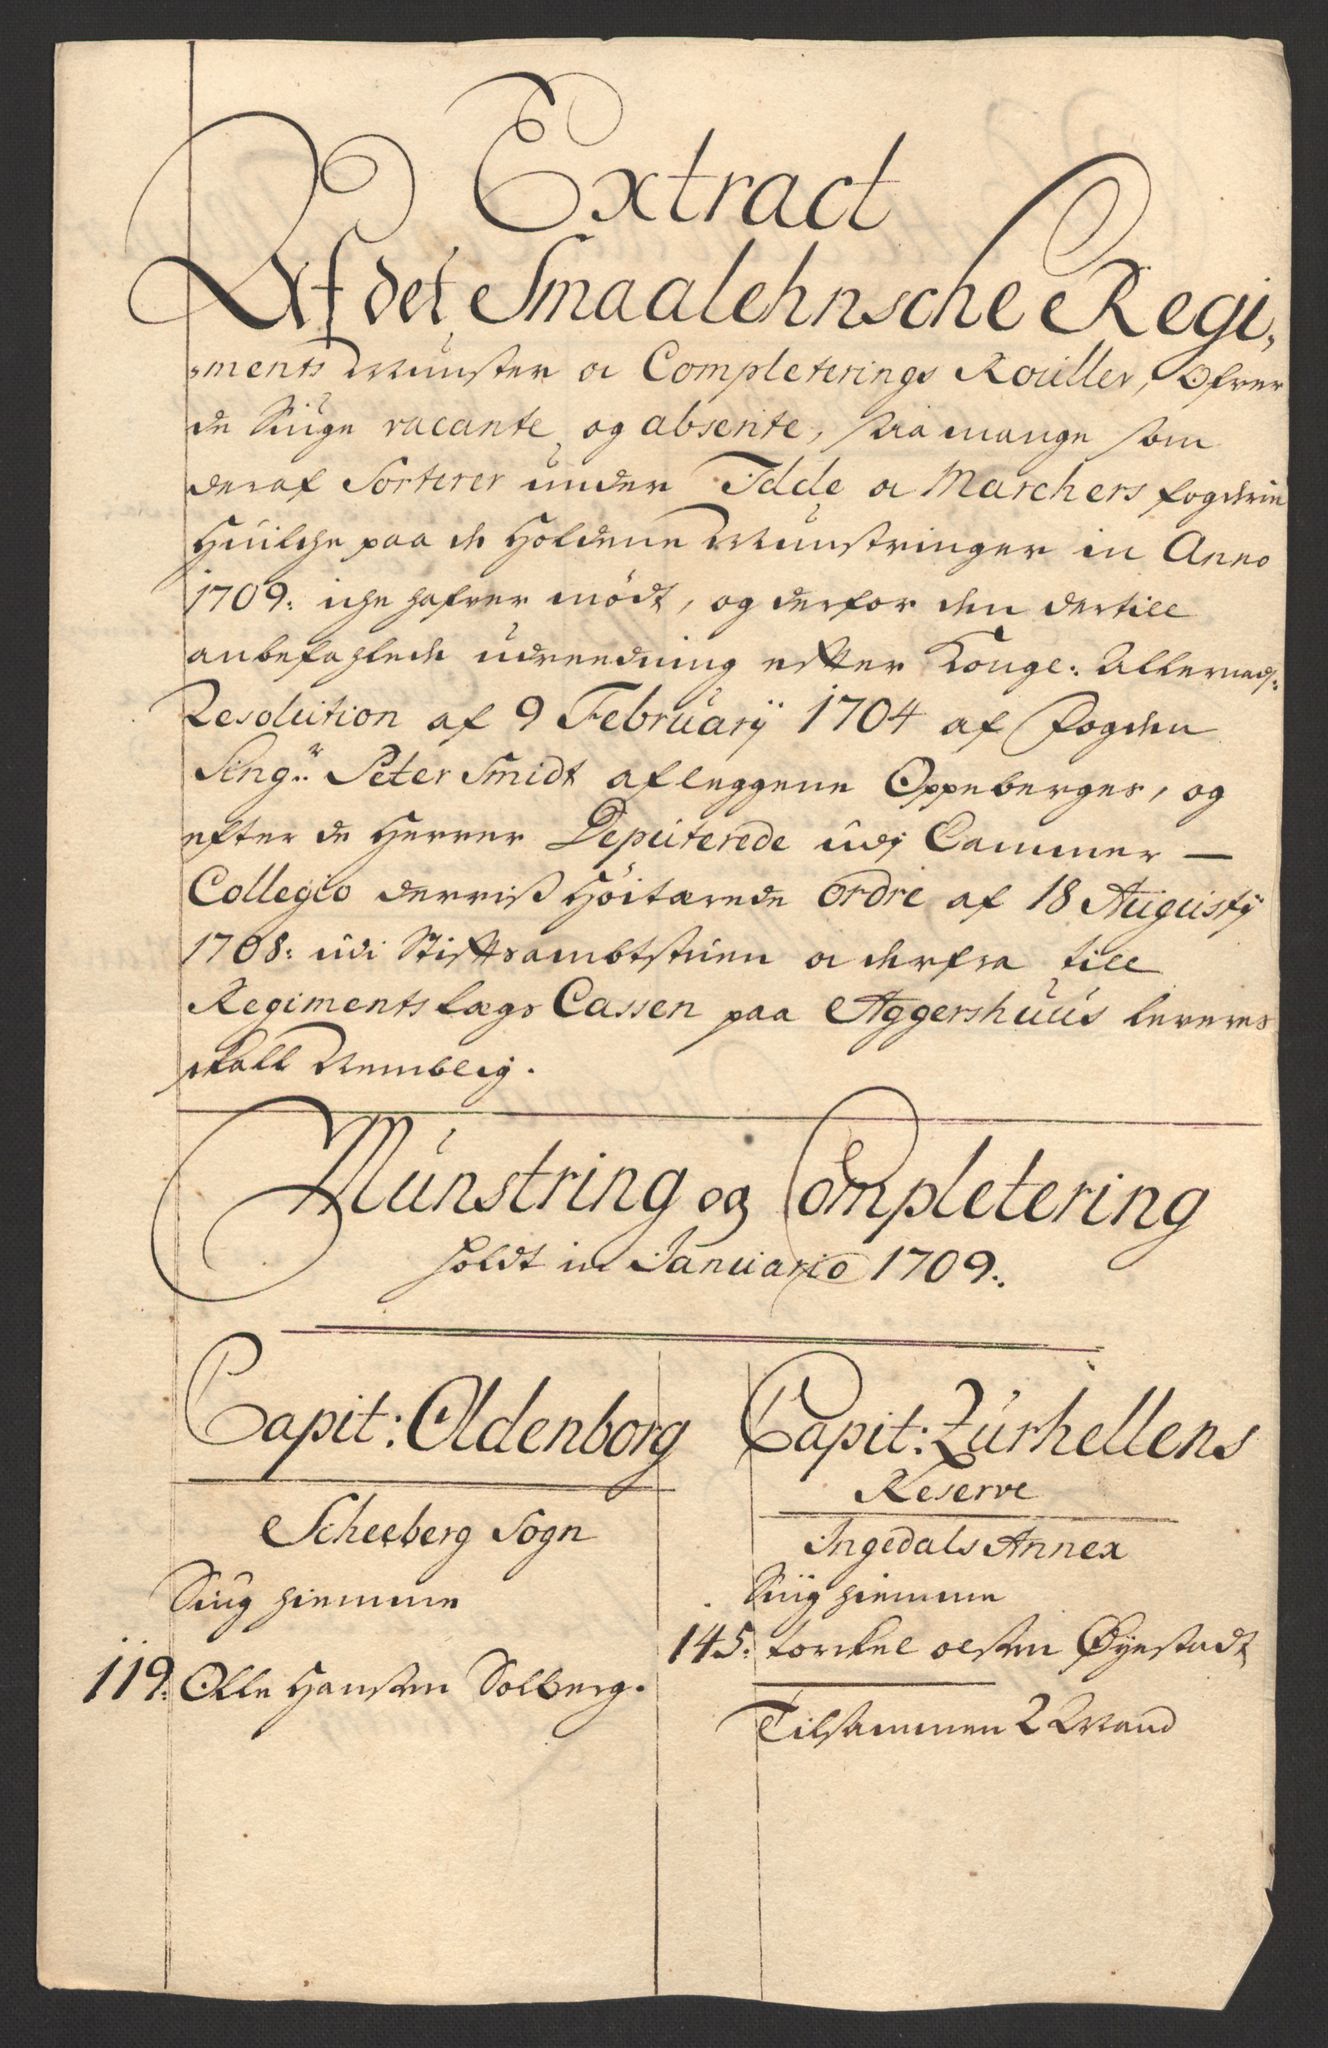 Extract
Af det Smaalehnsche Regi,
,,ments Munster og Completerings Roüller, Ofver
de Siuge vacante og absente, saa mange som
deraf Sorterer under Idde og Marchers fogderie
Huilche paa de Holdene Munstringer in Anno
1709: iche hafver mödt, og derfor den dertill
anbefahlede udreedning efter Konge: Allernad:
Resolution af 9 Februarÿ 1704 af Fogden
Sing:r Peter Smidt afleggene Oppeberges, og
efter de Herrer Deputerede udj Cammer –
Collegio derris Höitærede ordre af 18 Augustÿ
1708: udi Stiftsambtstuen og derfra till
Regiments lægs Cassen paa Aggershuus leveres
skall Nemblig.
Münstring og Completering
holdt in Januario 1709.
Capit: Oldenborg
Scheeberg Sogn
Siug hiemme
119: Olle Hansen Solberg.
Capit: Zürhellens
Reserve
Ingedals Annex
Siug hiemme
145: Torckel olsen Öÿestadt
Tilsammen 2 Mand